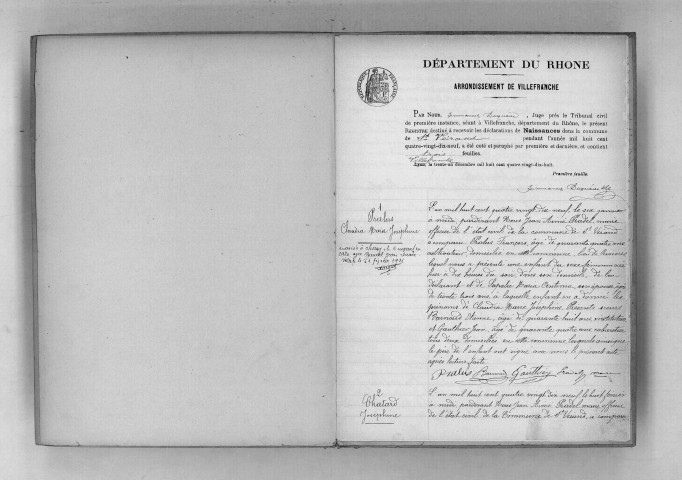 DÉPARTEMENT DU RHONE
ARRONDISSEMENT DE VILLEFRANCHE
PAR NOUS, Juge près le Tribunal civil
de première instance, séant à Villefranche, département du Rhône, le présent
REGISTRE destiné à recevoir les déclarations de Naissances dans la commune
de St Vérand pendant l'année mil huit cent
quatre-vingt-dix-neuf, a été coté et paraphé par première et dernière, et contient
feuilles.
Villefranche
Lyon, le trente-un décembre mil huit cent quatre-vingt-dix-huit.
Première feuille.
1
Pralus
Claudia Marie Joséphine
L'an mil huit cent quatre vingt dix neuf le six janvier
à midi, pardevant Nous Jean Aimé Riedel, maire
officier de l'état civil de la commune de St Vérand
a comparu Pralus François, âgé de quarante quatre ans
cultivateur domicilié en cette commune, lieu de
lequel nous a présenté une enfant du sexe féminin née
hier à dix heures du soir dans son domicile, de lui
déclarant et de Papelie Maria Centime, son épouse, âgée
de trente trois ans, à laquelle enfant on a donné les
prénoms de Claudia Marie Joséphine. Présents sieurs
Bernard Etienne, âgé de quarante huit ans instituteur
et Gauthier Jean, âgé de quarante quatre ans cultivateur
tous deux domiciliés en cette commune, lesquels ainsi que
le père de l'enfant ont signé avec nous le présent acte
après lecture faite.
Pralus Bernard Gauthier
2
Chatard
Joséphine
L'an mil huit cent quatre vingt dix neuf, le huit janvier
à midi pardevant Nous Jean Aimé Riedel, maire, officier
de l'état civil de la Commune de St Vérand, a comparu